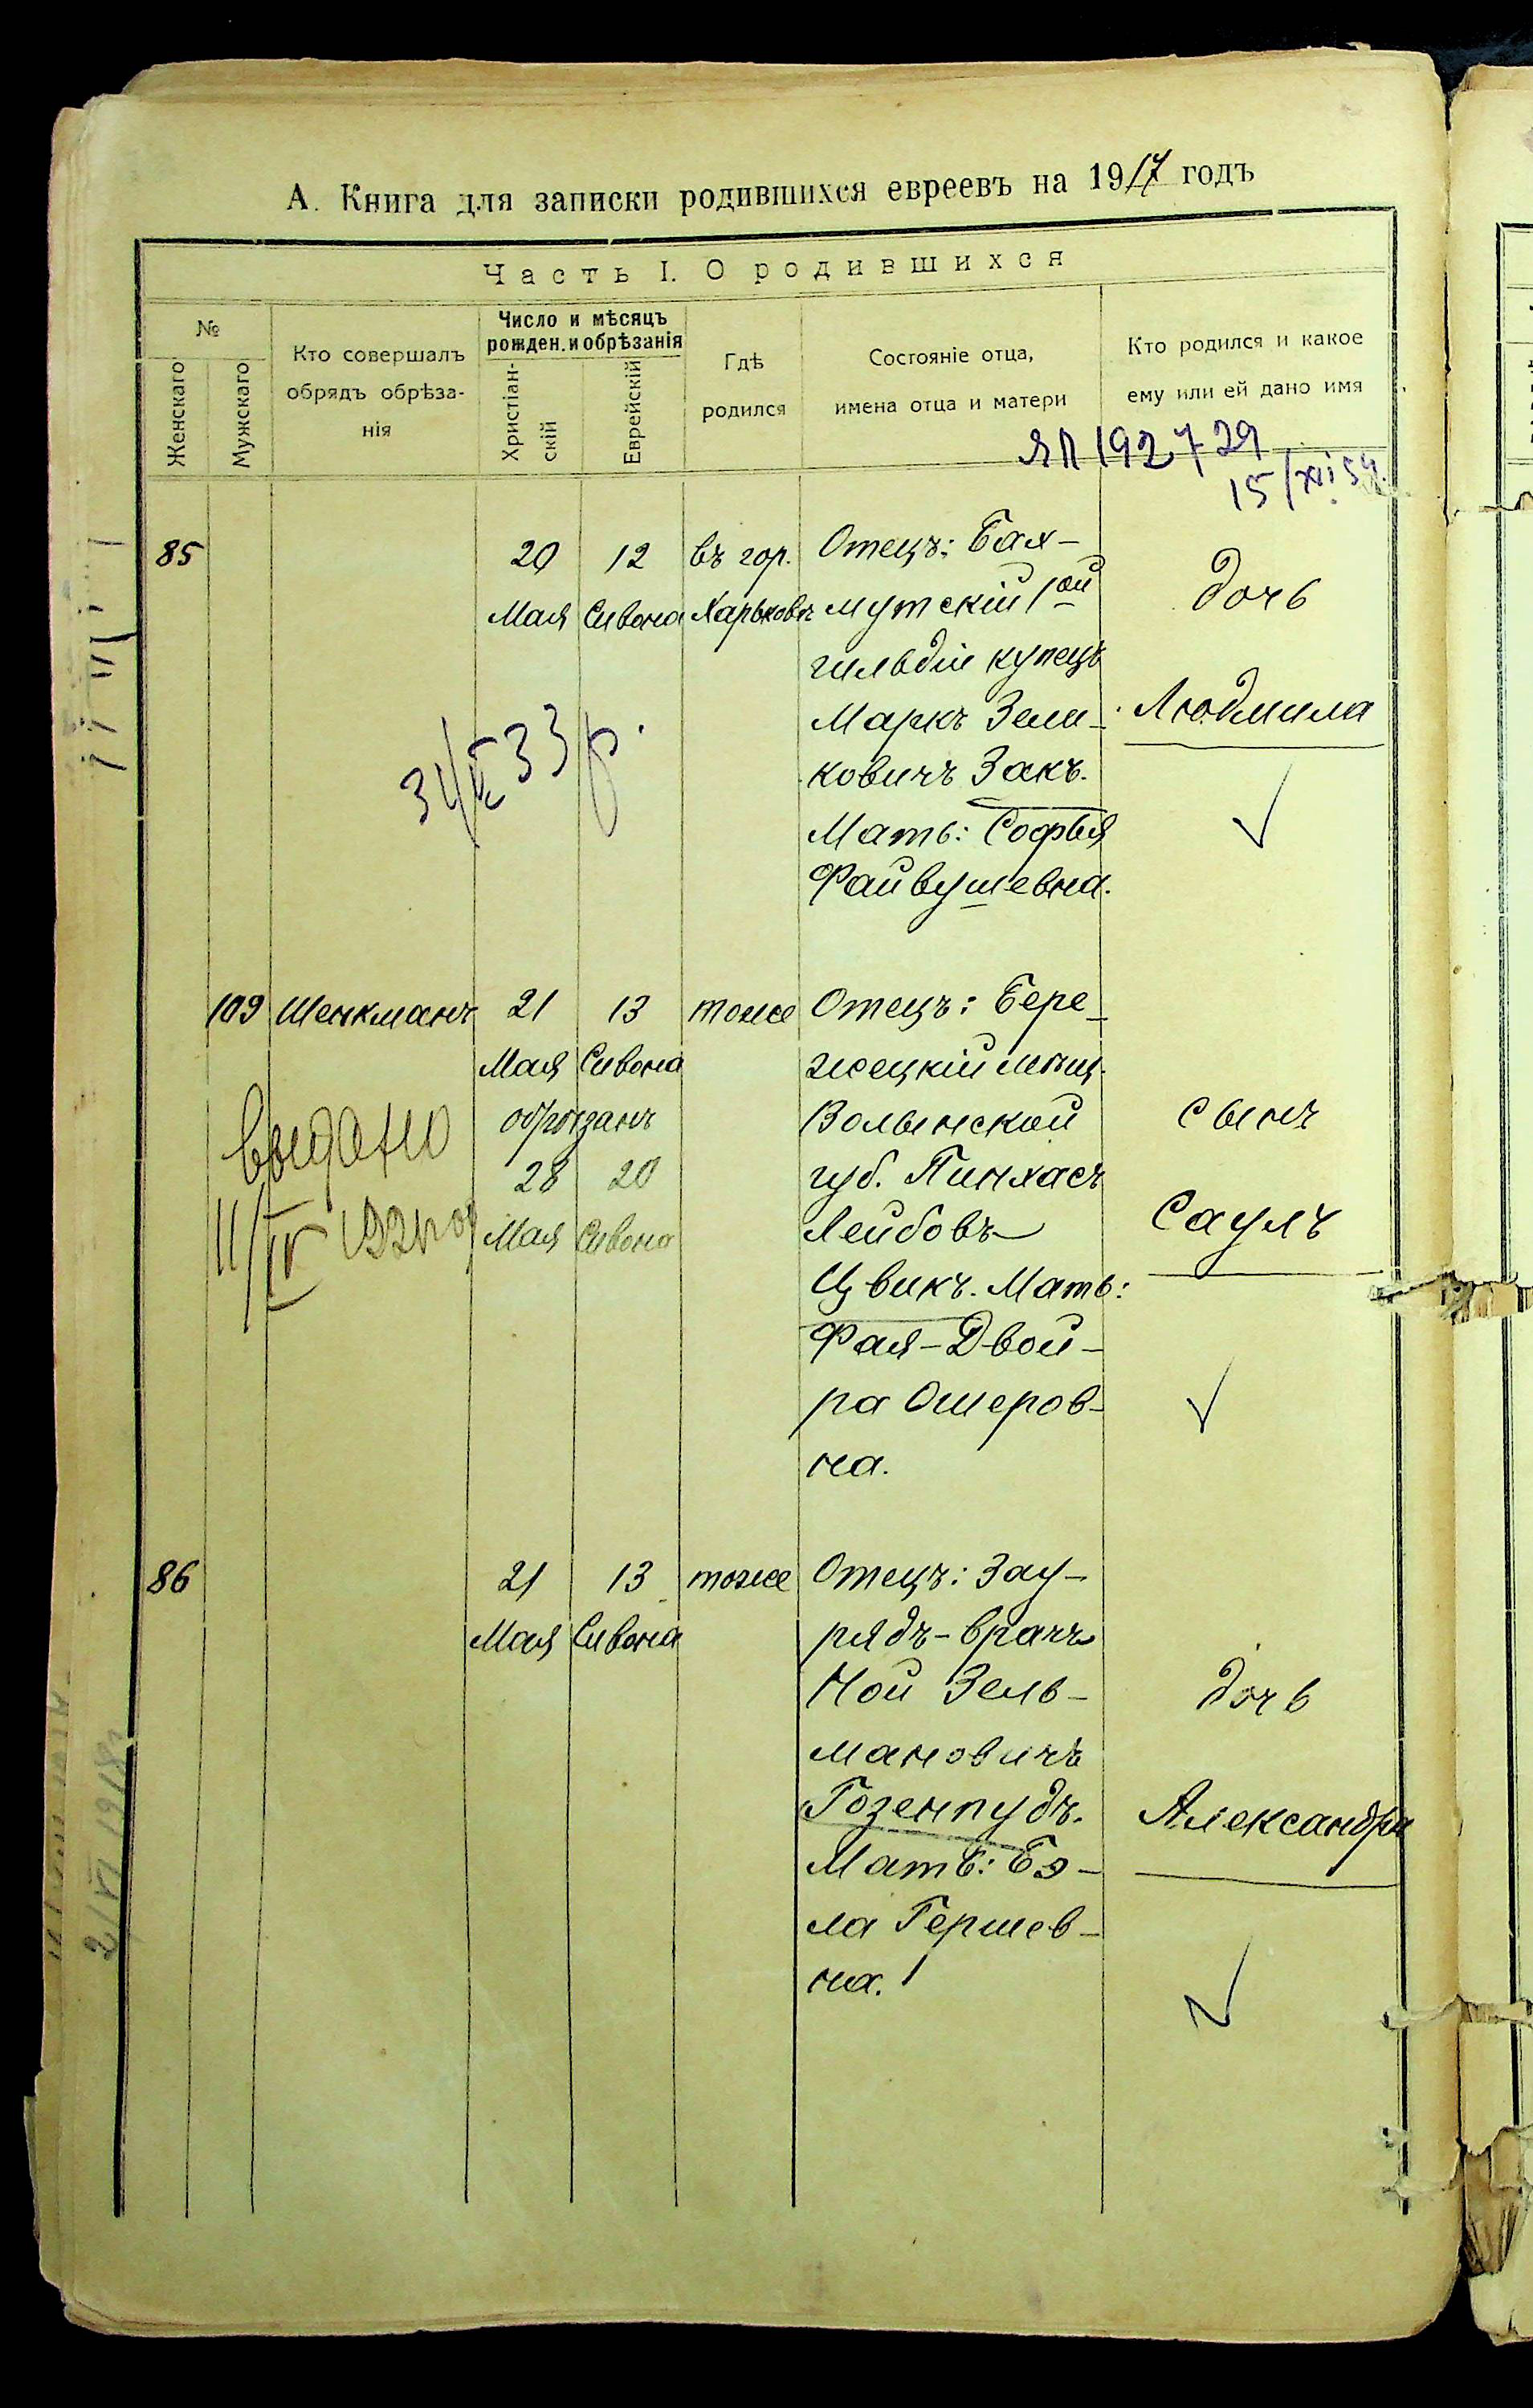 А. Книга для записки родившихся евреевъ на 1917 годъ
Часть I. О родившихся
№
Женскаго
Мужскаго
Кто совершалъ
обрядъ обрѣза-
нія
Число и мѣсяцъ
рожден. и обрѣзанія
Христіан-
скій
Еврейскій
Гдѣ
родился
Состояніе отца,
имена отца и матери
Кто родился и какое
ему или ей дано имя
ЯП 192729
15/XII 54
85
20
Мая
12
Сивона
въ гор.
Харьковѣ
Отецъ: Бах-
мутскій 1ой
гильдіи купецъ
Маркъ Зели-
ковичъ Закъ.
Мать: Софья
Файвушевна.
дочь
Людмила
33 р.
109
Шенкманъ
21
Мая
13
Сивона
обрѣзанъ
28
Мая
20
Сивона
тоже
Отецъ: Бере-
жецкій мѣщ.
Волынской
губ. Пинхасъ
Лейбовъ
Цвикъ. Мать:
Фая-Двой-
ра Ошеров-
на.
сынъ
Саулъ
выдано
11/IV
86
21
Мая
13
Сивона
тоже
Отецъ: Зау-
рядъ-врачъ
Ной Зель-
мановичъ
Гозенпудъ.
Мать: Бэ-
ла Гершев-
на.
дочь
Александра
2/VI 1918